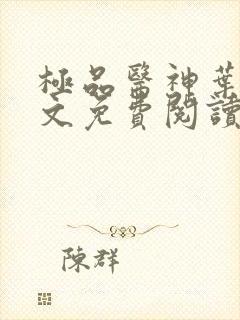 極品醫神葉
文免費閱讀
陳群